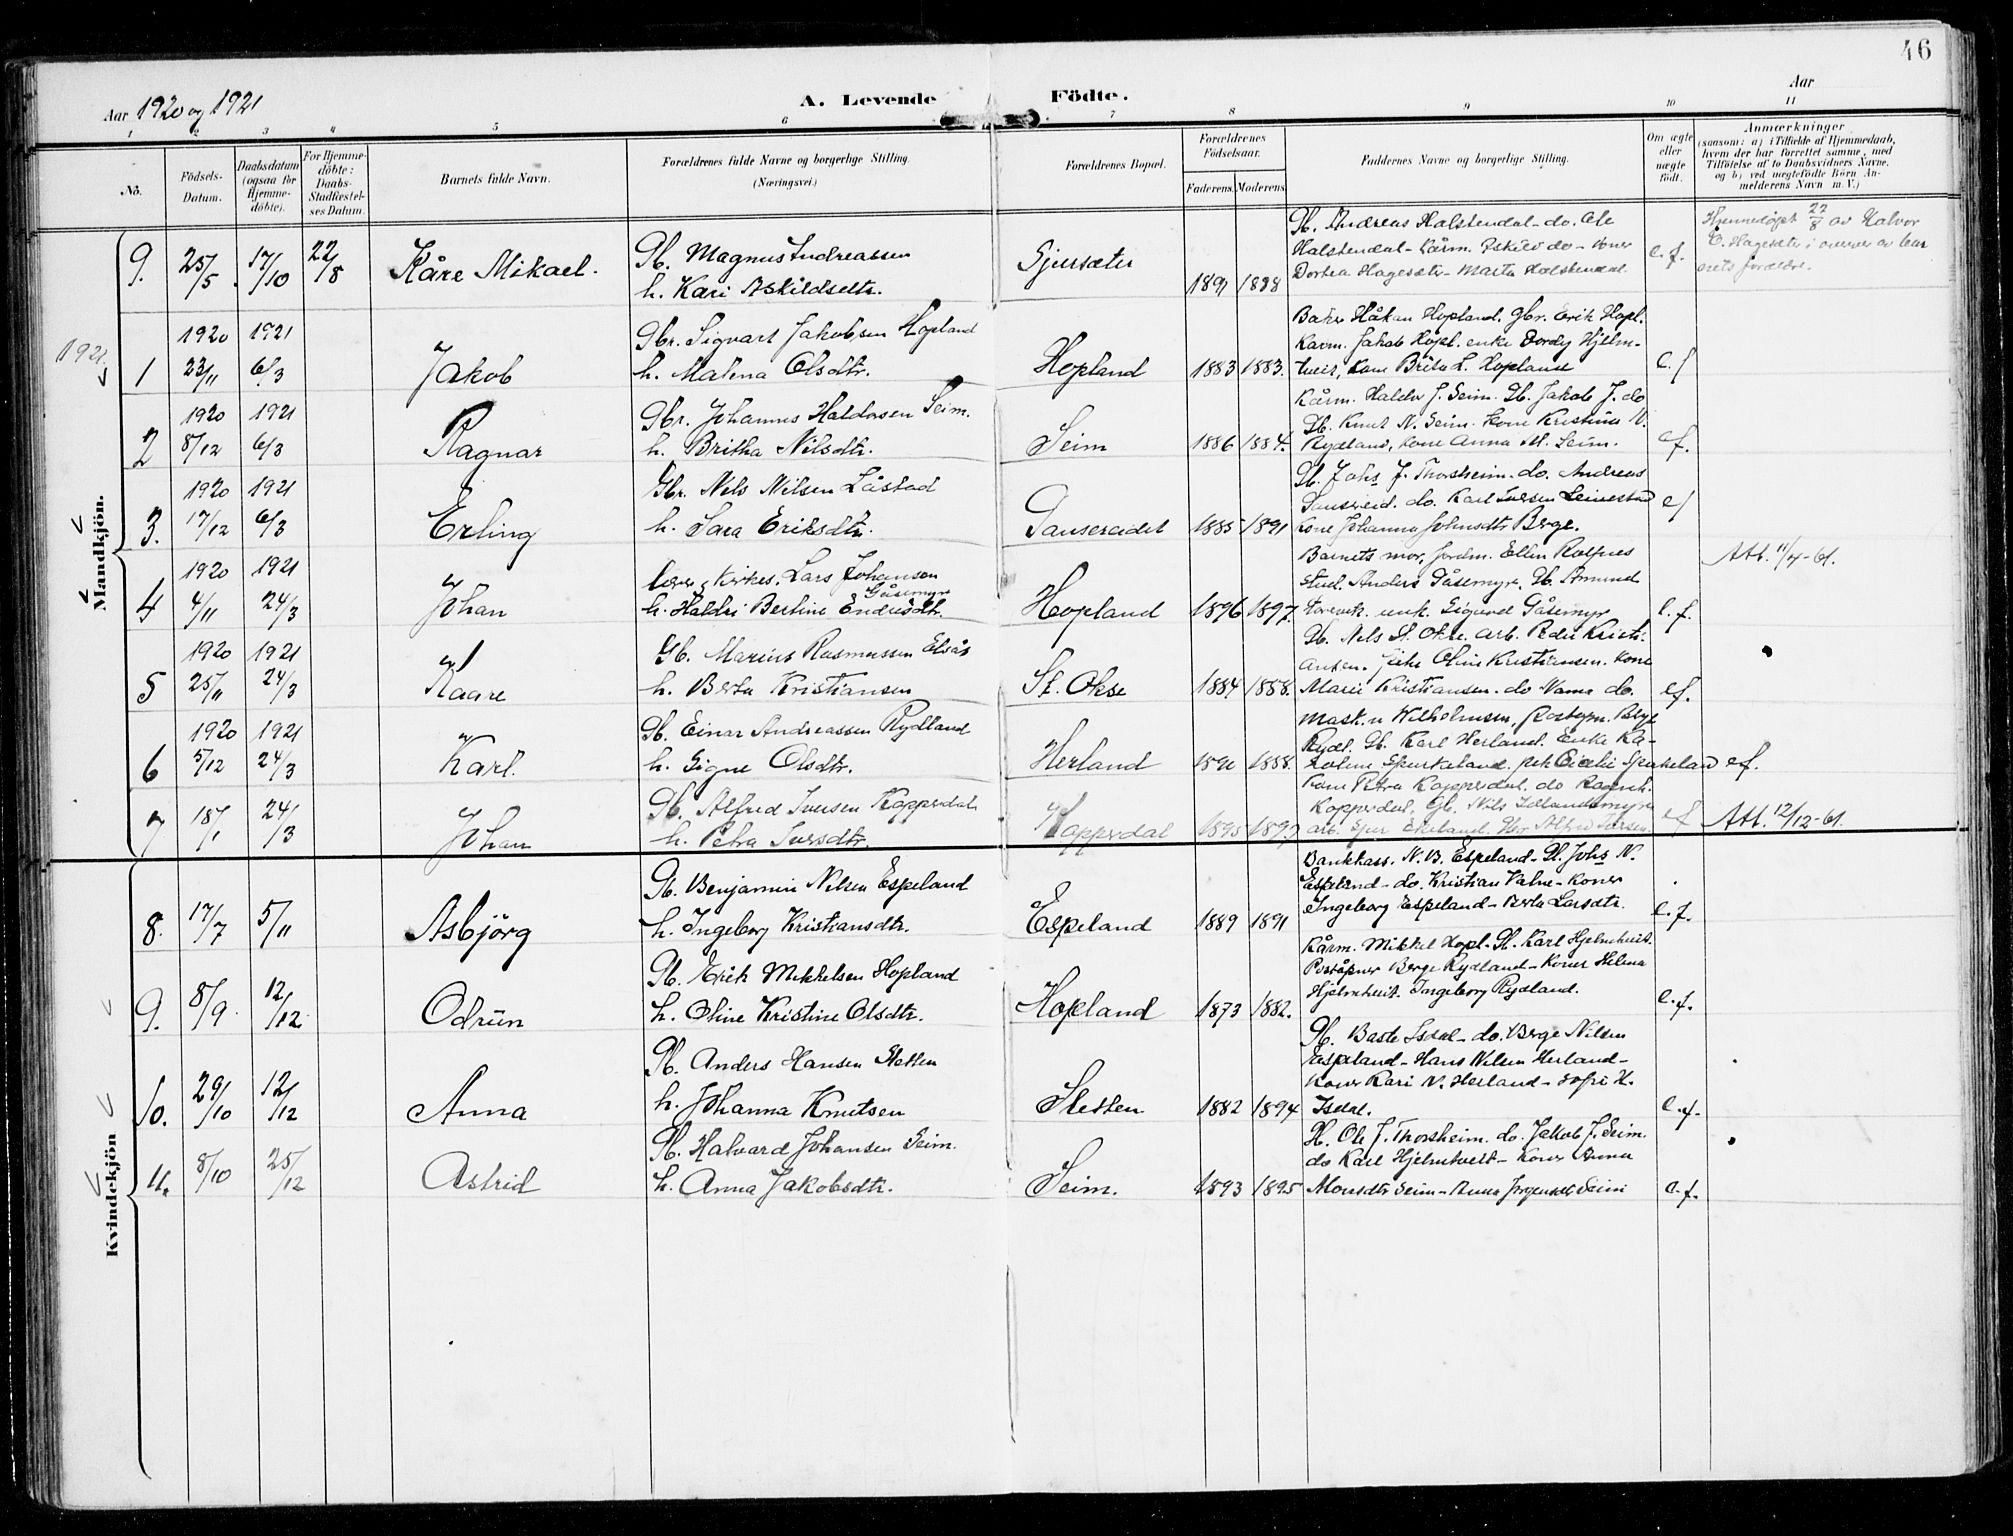 46
Aar 1920 og 1921
A. Levende Födte.
Aar
1 2 3 4 5 6 7 8 9 10 11
No.
Födsels-Datum.
Daabsdatum (ogsaa for Hjemme-döbte).
For Hjemme-döbte: Daabs-Stadfæstel-ses Datum.
Barnets fulde Navn.
Forældrenes fulde Navne og borgerlige Stilling. (Næringsvei.)
Forældrenes Bopæl.
Forældrenes Födselsaar.
Faderens. Moderens
Faddernes Navne og borgerlige Stilling.
Om ægte eller uægte födt.
Anmærkninger
(saasom: a) i Tilfælde af Hjemmedaab, hvem der har forrettet samme, med Tilföielse af to Daabsvidners Navne, og b) ved uægtefödte Börn An-melderens Navn m. V.)
Mandkjön.
9. 25/5 17/10 22/8 Kåre Mikael.
Gb. Magnus Andreassen
h. Kari Askildsdtr.
Gjersæter 1891 1898
Gb. Andreas Halstendal - do. Ole
Halstendal - Kårm. Eskild do - Koner
Dortea Hagesæter - Marta Halstendal.
e. f.
Hjemmedøpt 22/8 av Halvor
Hagesæter i overvær av bar
nets forældre.
1921.
1 1920 23/11 1921 6/3 Jakob
Gbr. Sigvart Jakobsen Hopland
h. Malena Olsdtr.
Hopland 1883 1883.
Håkan Hopland. Gbr. Erik Hopl.
Kårm. Jakob Hopl. enke Dordy Hjelm-
tveit, Kone Brita L. Hopland
e. f
2 1920 8/12 1921 6/3 Ragnar
Gbr. Johannes Haldorsen Seim.
h. Britha Nilsdtr.
Seim 1886 1884.
Kårm. Haldor J. Seim. Gb. Jakob J. do
Gb. Knut N. Seim. Kone Kristina N.
Rydland, Kone Anna M. Seim.
ef.
3. 1920 17/12 1921 6/3 Erling
Gbr. Nils Nilsen Låstad
h. Sara Eriksdtr.
1885 1891
Gb. Johs J. Thorsheim. do. Andreas
do. Karl Iversen Leivestad
Kone Johanna Johnsdtr Berge.
ef
4 1920 4/11 1921 24/3 Johan
Lars Johansen
Gåsemyr
h. Haldri Bertine Endresdtr.
Hopland 1896 1897.
Barnets mor, Jordm. Ellen Rolfnes
stud. Anders Gåsemyr. Gb. Amund
unk. Sigurd Gåsemyr
e. f.
Att. 11/4-61.
5 1920 25/11 1921 24/3 Kaare
Gb. Marius Rasmussen Elsås
h. Berta Kristiansen
St. Okse 1884 1888.
Gb. Nels St. Okse. arb. Peder Kristi-
ansen. Pike Oline Kristiansen. Kone
Marie Kristiansen. do Vama do.
ef.
6 1920 5/12 1921 24/3 Karl.
Gb. Einar Andreassen Rydland
h. Signe Olsdtr.
Herland 1888.
Mask. Wilhelmsen, Postopn. Berge
Rydl. Gb. Karl Herland. Enke Ka-
roline Spurkeland. pike Spurkeland
ef.
7 18/1 24/3 Johan
Gb. Alfred Iversen Kopperdal
h. Petra Iversdtr.
Kopperdal 1895 1897
Kone Petra Kopperdal. do Ragnh.
Kopperdal. Gb. Nils
arb. Ekeland.
ef
Att. 12/12-61.
Kvindekjön
8. 17/7 5/11 Asbjörg
Gb. Benjamin Nilsen Espeland
h. Ingeborg Kristiansdtr.
Espeland 1889 1891
Bankkass. N. B. Espeland - Gb. Johs N.
Espeland - do. Kristian Valne - Koner
Ingeborg Espeland - Berta Larsdtr.
e. f.
9. 8/9 12/12 Odrün
Gb. Erik Mikkelsen Hopland
h. Oline Kristine Olsdtr.
Hopland 1873 1882.
Kårm. Mikkel Hopl. - Gb. Karl Hjelmtveit.
Poståpner Berge Rydland - Koner Helena
Hjelmtveit. Ingeborg Rydland.
e. f.
10. 29/10 12/12 Anna
Gb. Anders Hansen Sletten
h. Johanna Knutsen
Sletten 1882 1894
Gb. Baste Isdal - do. Berge Nilsen
Espeland - Hans Nilsen Herland -
Koner Kari N. Herland - Sofie H.
Isdal.
e. f.
11. 8/10 25/12 Astrid
Gb. Halvard Johansen Seim.
h. Anna Jakobsdtr.
Seim. 1893 1895
Gb. Ole J. Thorsheim. do. Jakob J. Seim.
do Karl Hjelmtveit - Koner Anna
Monsdtr Seim - Anna Jørgensdtr Seim
e. f.